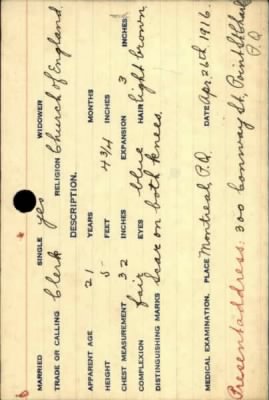 MARRIED SINGLE yes WIDOWER
TRADE OR CALLING Clerk RELIGION Church of England
DESCRIPTION.
APPARENT AGE 21 YEARS MONTHS
HEIGHT 5 FEET 4 3/4 INCHES
CHEST MEASUREMENT 32 INCHES EXPANSION 3 INCHES
COMPLEXION fair EYES blue HAIR light brown
DISTINGUISHING MARKS Scar on both knees.
MEDICAL EXAMINATION. PLACE Montreal, P.Q. DATE Apr. 26th 1916.
Present address: 300 Conway St, Point St Charles
P.Q